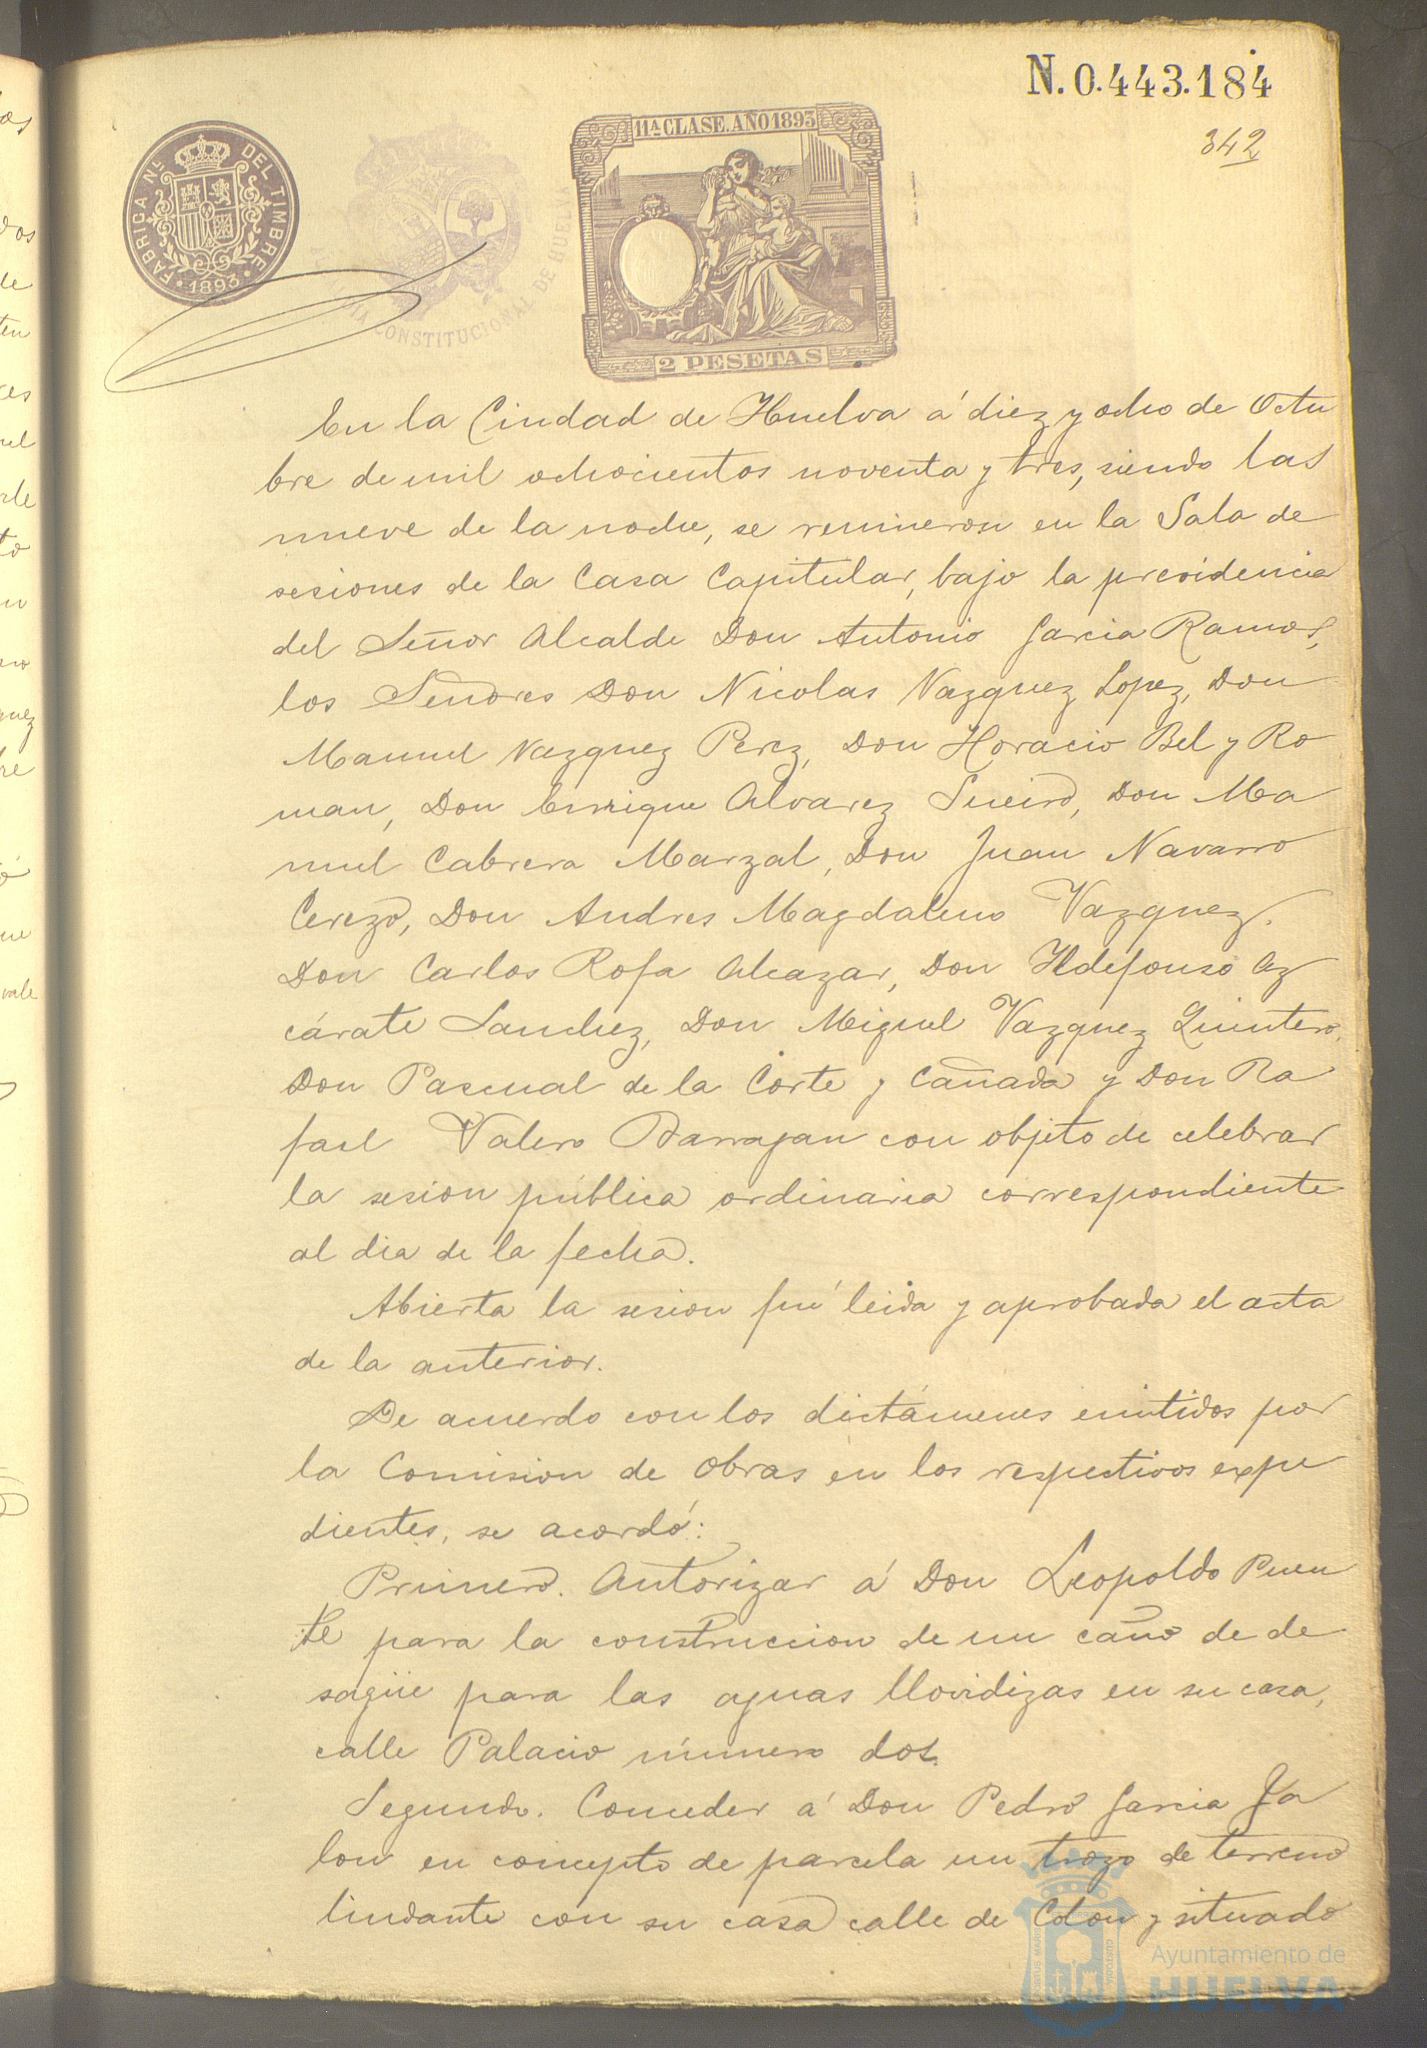 N. 0.443.184
342
FABRICA NL. DEL TIMBRE
1893
11ª CLASE. AÑO 1893
CONSTITUCIONAL DE HUELVA
2 PESETAS
En la Ciudad de Huelva á diez y ocho de Octu
bre de mil ochocientos noventa y tres, siendo las
nueve de la noche, se reunieron en la Sala de
sesiones de la Casa Capitular, bajo la presidencia
del Señor Alcalde Don Antonio Garcia Ramos,
los Señores Don Nicolas Vazquez Lopez, Don
Manuel Vazquez Perez, Don Horacio Bel y Ro
man, Don Enrique Alvarez Sueiro, Don Ma
nuel Cabrera Marzal, Don Juan Navarro
Cerezo, Don Andres Magdaleno Vazquez,
Don Carlos Rofa Alcazar, Don Ildefonso Az
cárate Sanchez, Don Miguel Vazquez Quintero,
Don Pascual de la Corte y Cañada y Don Ra
fael Valero Barragan con objeto de celebrar
la sesion pública ordinaria correspondiente
al dia de la fecha.
Abierta la sesion fué leida y aprobada el acta
de la anterior.
De acuerdo con los dictámenes emitidos por
la Comision de Obras en los respectivos expe
dientes, se acordó:
Primero. Autorizar á Don Leopoldo Puen
te para la construccion de un caño de de
sagüe para las aguas llovidizas en su casa,
calle Palacio número dos.
Segundo. Conceder á Don Pedro Garcia Ja
lon en concepto de parcela un trozo de terreno
lindante con su casa calle de Colon y situado
Ayuntamiento de
HUELVA